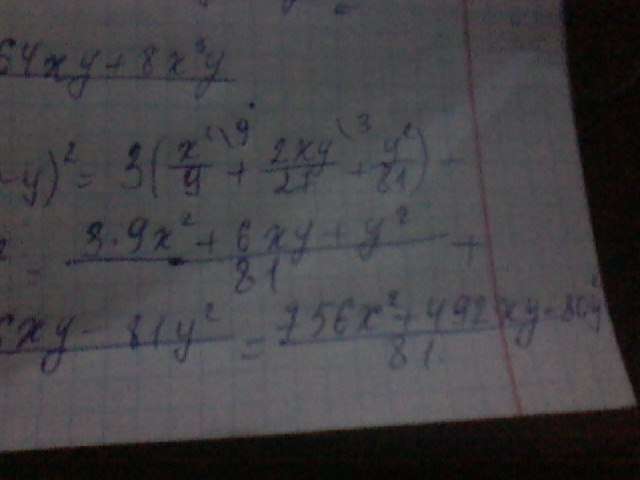 64xy + 8x²y
-y)² = 3(x²/9 \9 + 2xy/27 \3 + y²/81) -
² = 3·9x² + 6xy + y² / 81 +
6xy - 81y² = 756x² + 492xy - 80y² / 81